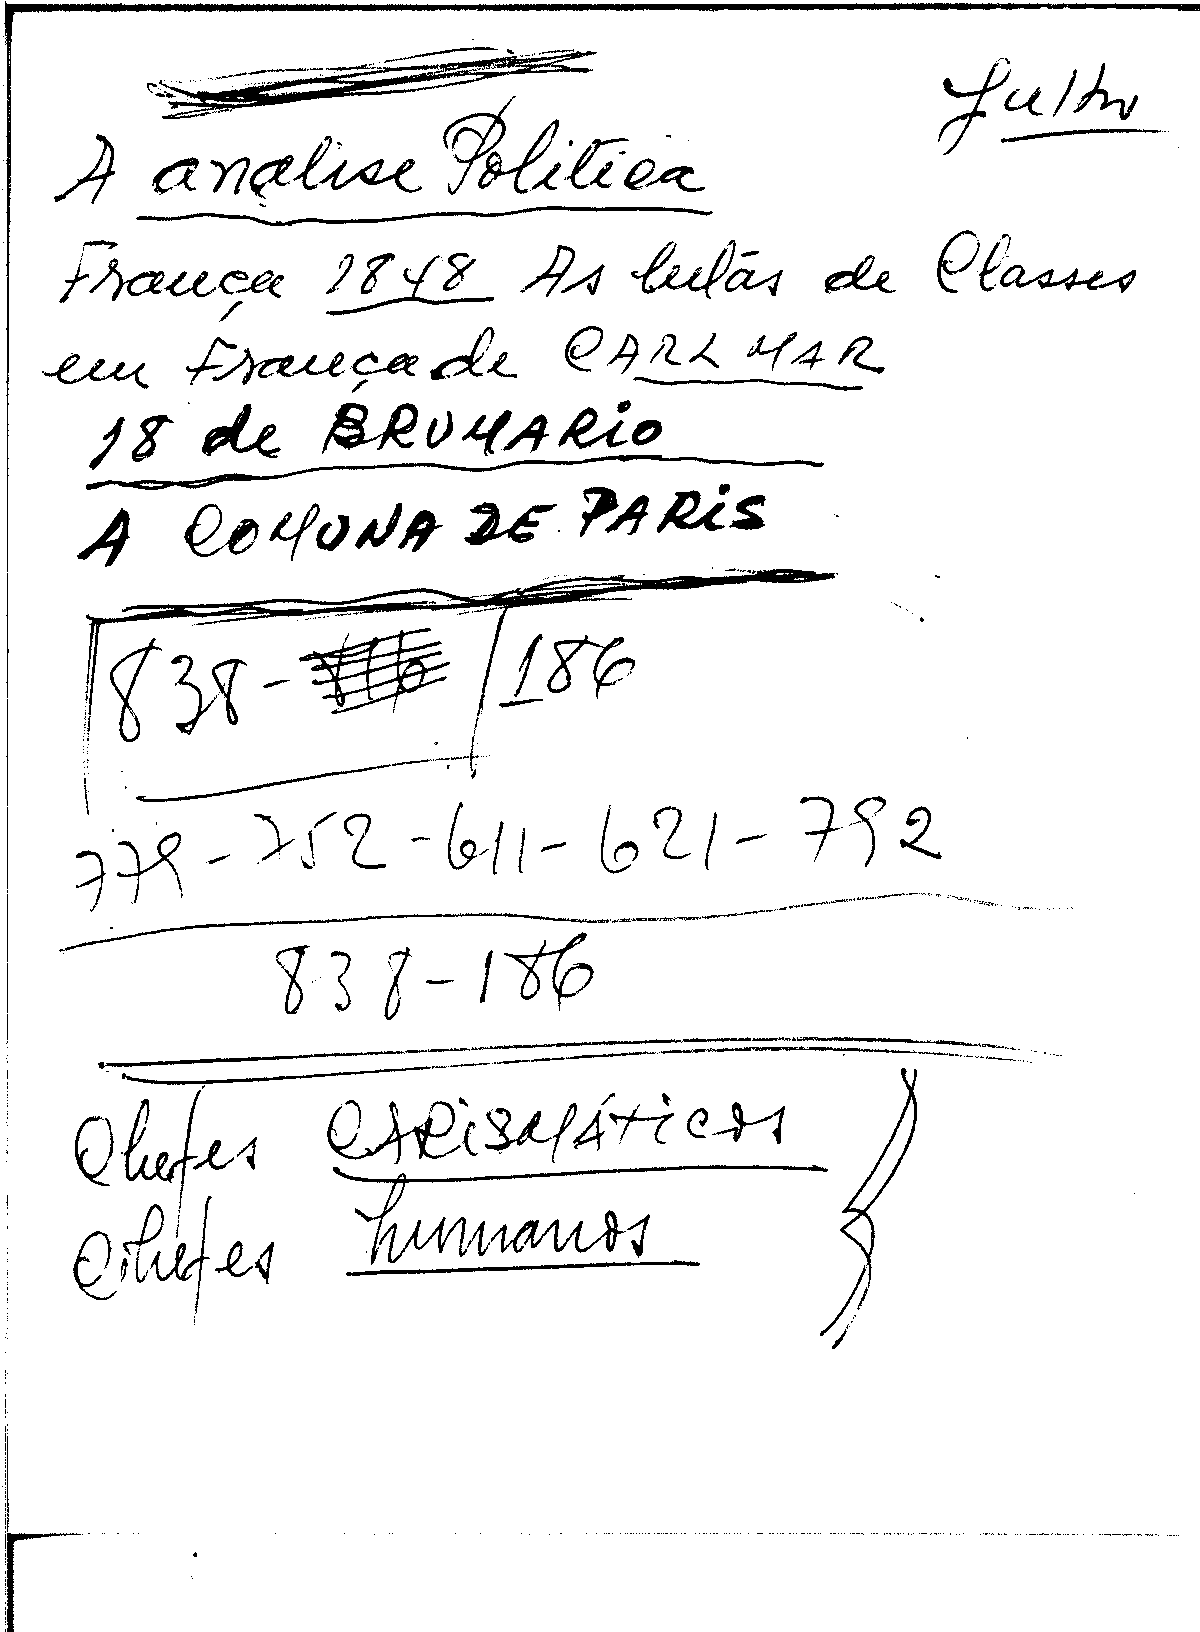 Julho
A análise Política
França 1848 As lutas de Classes
em França de CARL MAR
18 de BRUMARIO
A COMUNA DE PARIS
838 - 186
779 - 752 - 611 - 621 - 792
838 - 186
Chefes CARISMÁTICOS
Chefes humanos